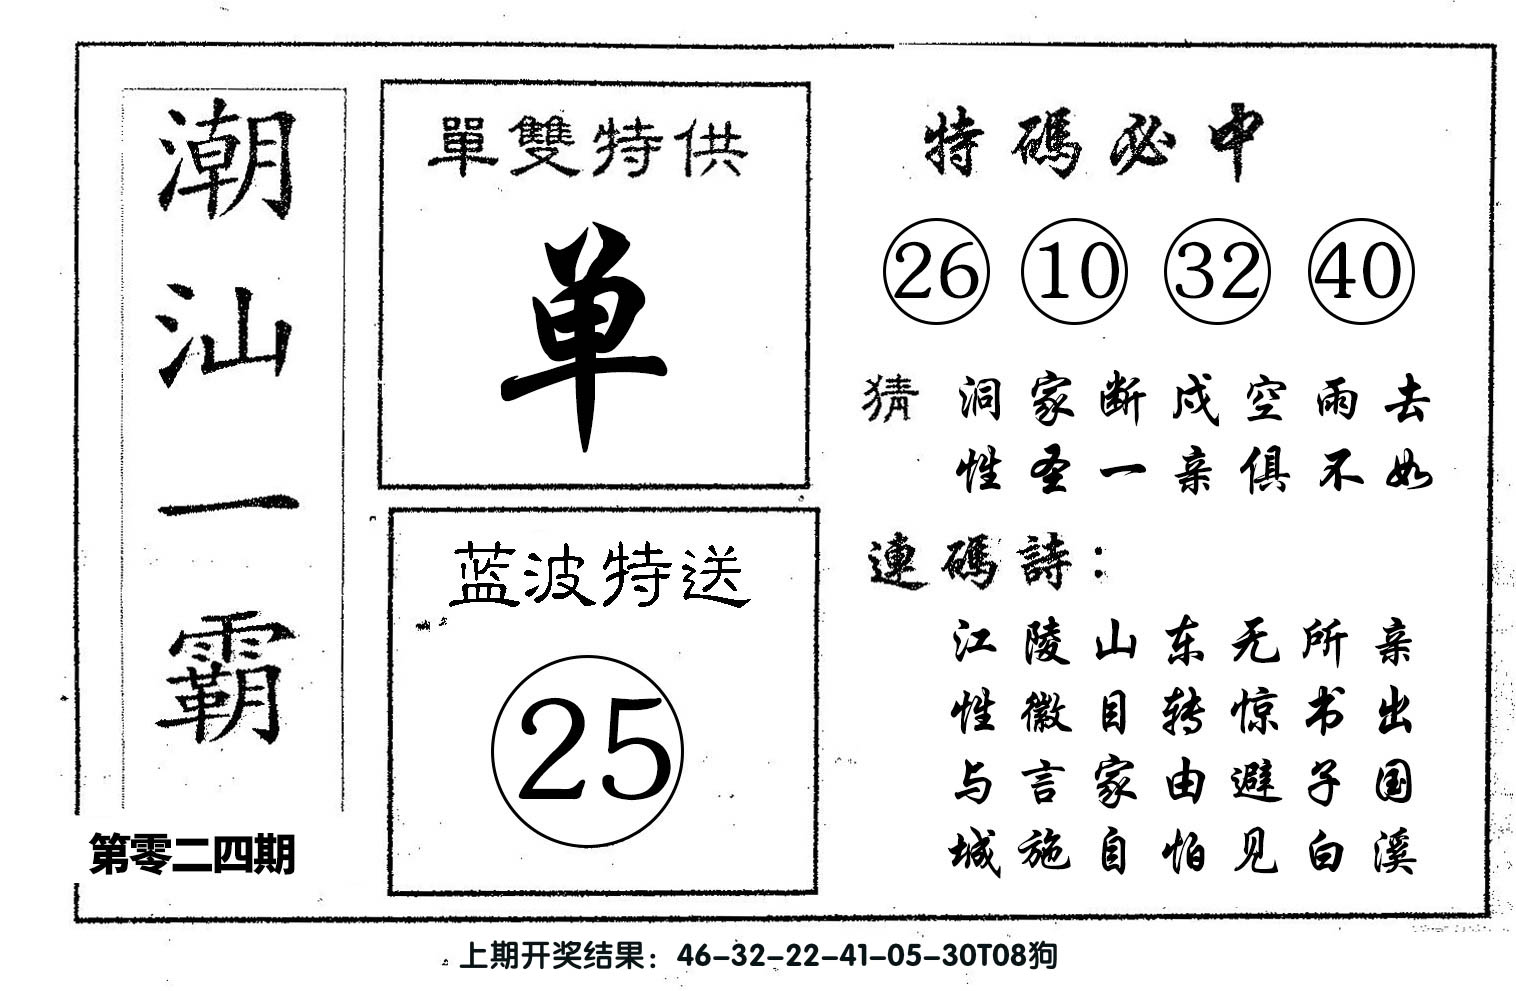 潮汕一霸
第零二四期
單雙特供
单
蓝波特送
25
特碼必中
26 10 32 40
猜 洞家断戍空雨去
性圣一亲俱不如
連碼詩：
江陵山东无所亲
性徽目转惊书出
与言家由避子国
城施自怕见白溪
上期开奖结果：46-32-22-41-05-30T08狗